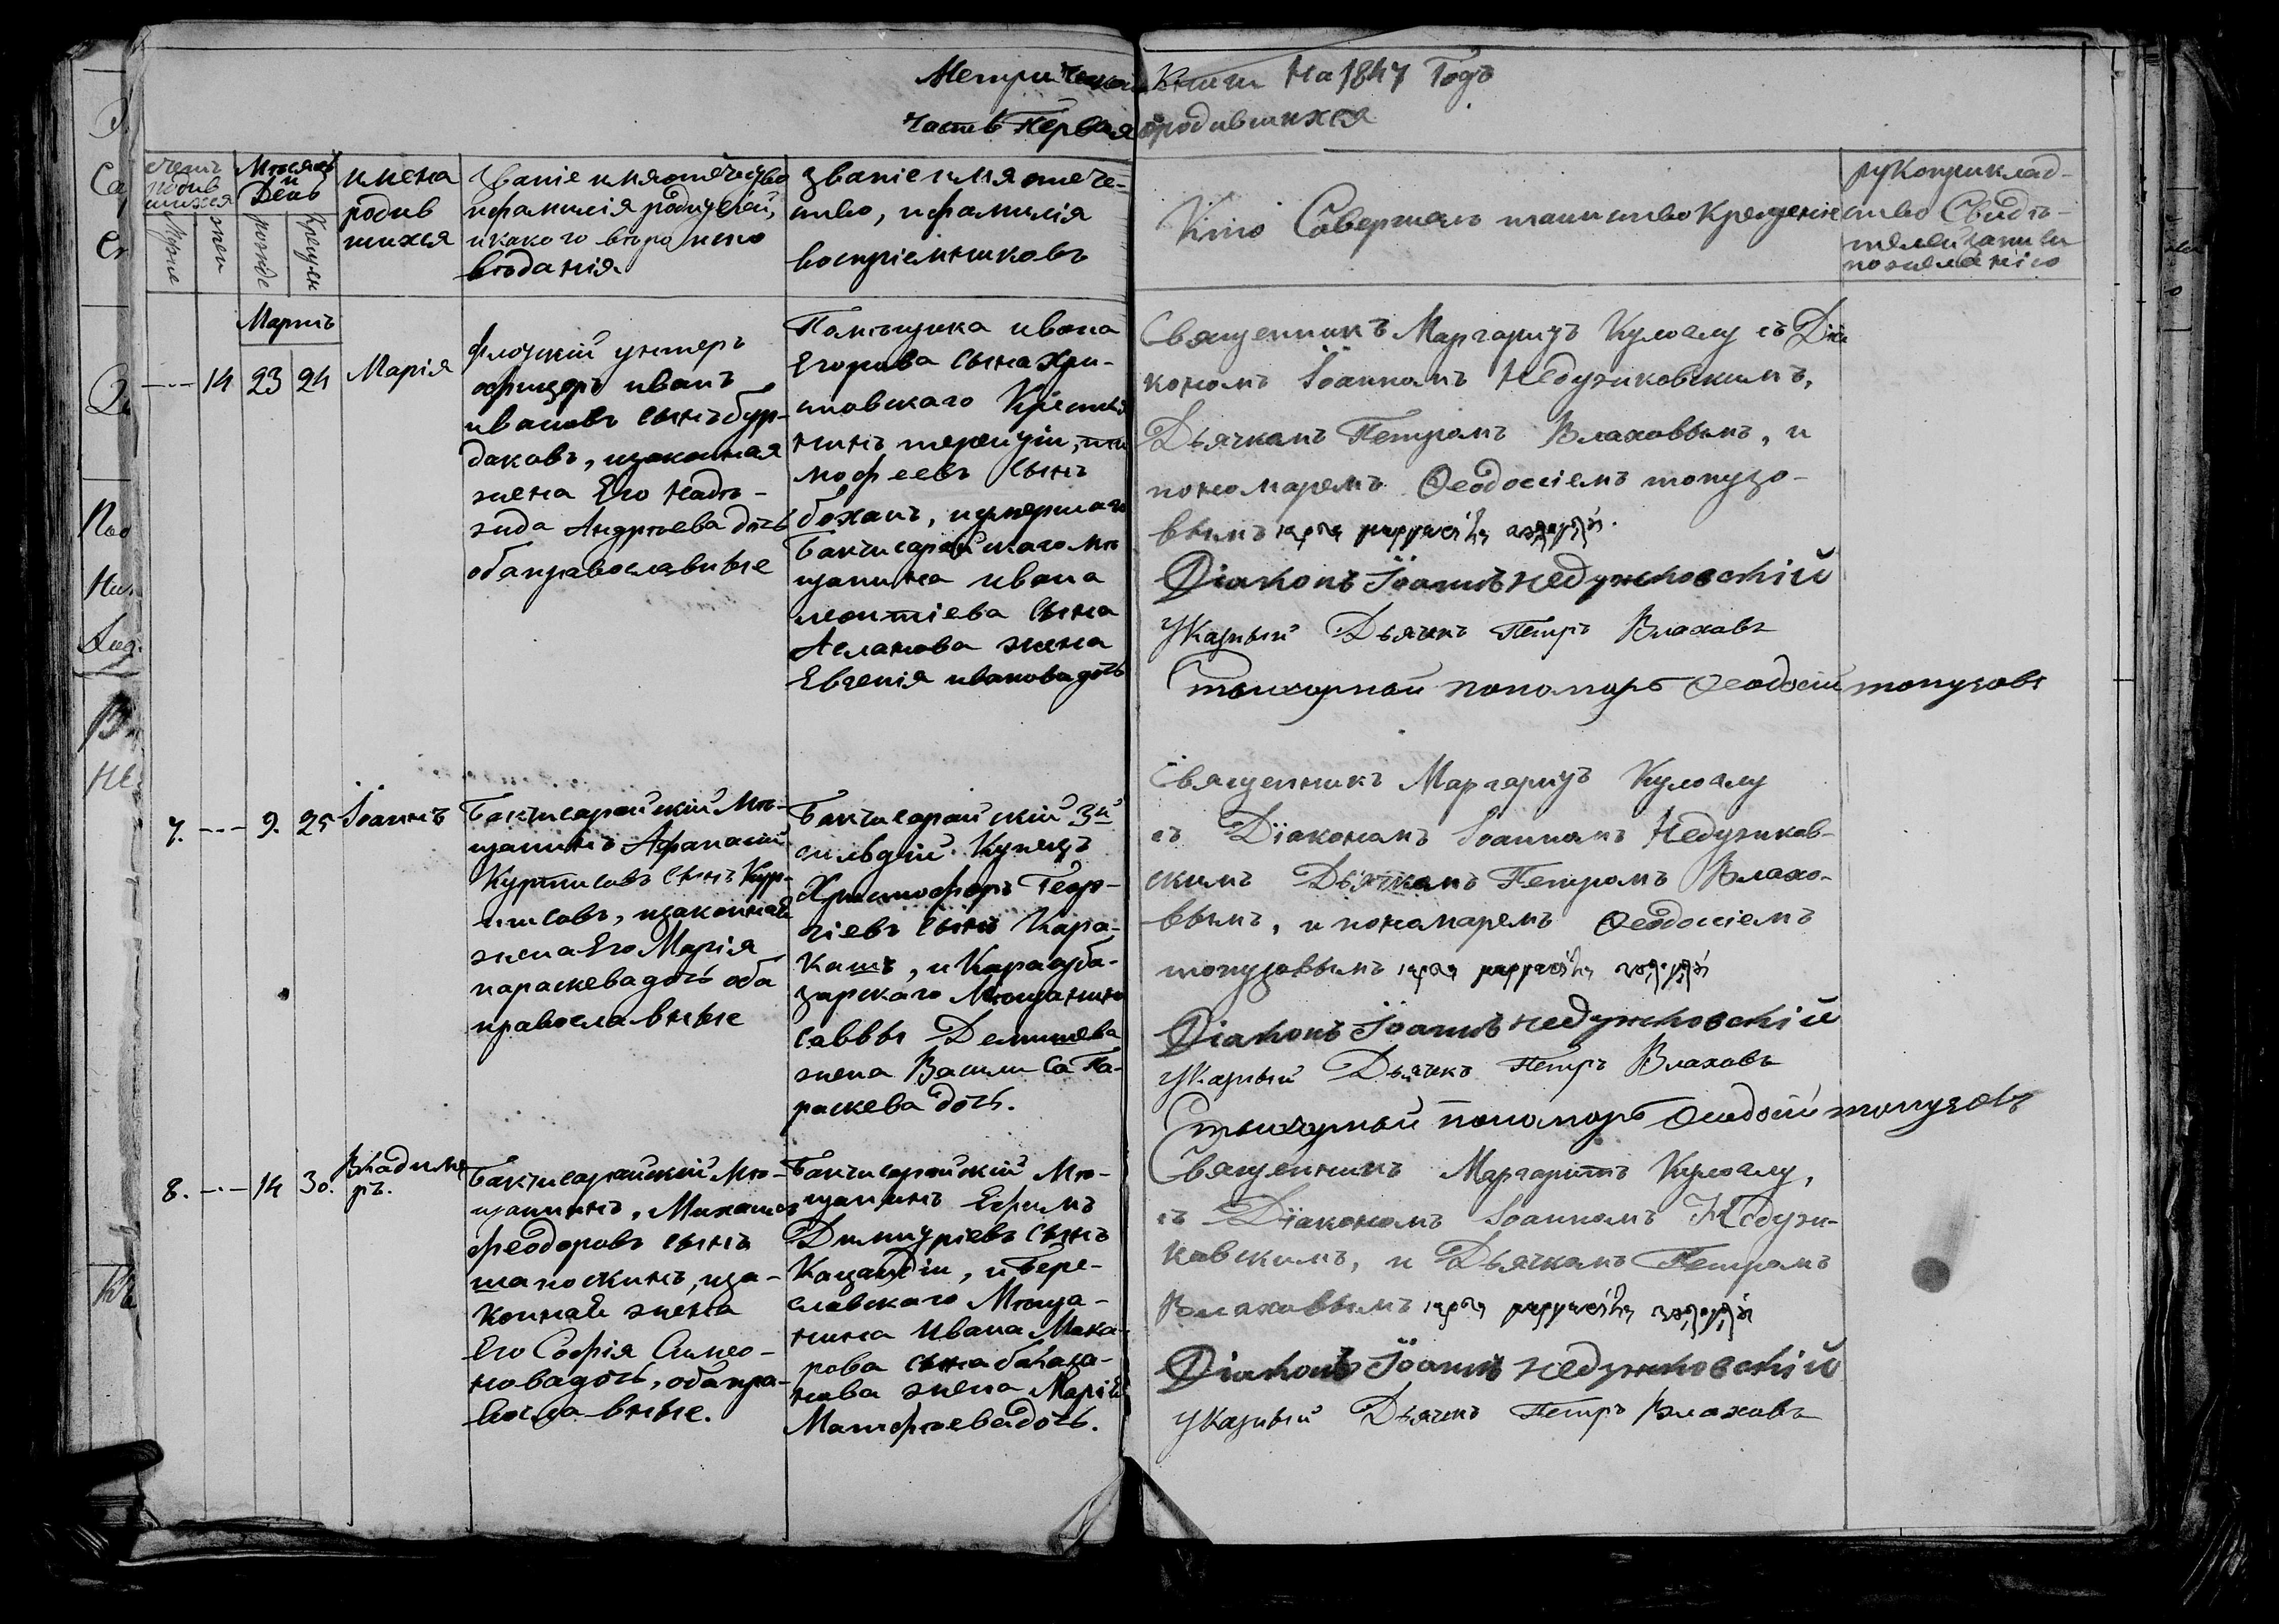 Метрической Книги На 1847 Годъ
Часть Первая о родившихся
счетъ родившихся
Мужс
жен
Мѣсяцъ и День
рожде
Крещен
имена родив шихся
Званіе имя отечество
и фамилія родителей,
и какого вѣро испо
вѣданія
званіе имя отече-
ство, и фамилія
воспріемниковъ
Кто Совершалъ таинство Крещенія
рукоприклад-
ство Свидѣ-
телей записи
по желанію
Мартъ
--- 14 23 24 Марія
флотскій унтеръ
офицеръ иванъ
ивановъ сынъ бур-
даковъ, и законная
жена Его Надѣ-
жда Андрѣева дочь
оба православные
Помѣщика ивана
Егорова сына Хри-
новскаго Крестья
нинъ терентій, ти
мофеевъ сынъ
бохан, и умершаго
Бакчисарайскаго мѣ
щанина ивана
леонтіева сына
Асланова жена
Евгенія иванова дочь
Священникъ Маргаритъ Кулоглу съ Діа
кономъ Іоанномъ Недужиковскимъ,
Дьячкомъ Петромъ Влаховымъ, и
пономаремъ Ѳеодосіемъ топузо-
вымъ
Діаконъ Іоаннъ недужковскій
Указный Дьячекъ Петръ Влаховъ
Стихарный пономарь Ѳеодосій топузовъ
7. --- 9. 25 Іоаннъ
Бакчисарайскій Мѣ-
щанинъ Афанасій
Куртисовъ сынъ Кур-
тисовъ, и законная
жена Его Марія
параскева дочь оба
православные
Бакчисарайскій 3й
гильдіи Купецъ
Христофоръ Геор-
гіевъ сынъ Кара-
кашъ, и Карасуба-
зарскаго Мѣщанина
Саввы Демишева
жена Василиса Па-
раскева дочь.
Священникъ Маргаритъ Кулоглу
съ Діакономъ Іоанномъ Недужиков-
скимъ Дьячкомъ Петромъ Влахо-
вымъ, и пономаремъ Ѳеодосіемъ
топузовымъ
Діаконъ Іоаннъ недужковскій
Указный Дьячекъ Петръ Влаховъ
Стихарный пономарь Ѳеодосій топузовъ
8. --- 14 30. Владими
ръ.
Бакчисарайскій Мѣ-
щанинъ, Михаилъ
феодоровъ сынъ
шапошкинъ, и за-
конная жена
Его Софія Симео-
нова дочь, оба пра-
вославные.
Бакчисарайскій Мѣ-
щанинъ Ефимъ
Димитріевъ сынъ
Кацанди, и Бере-
славскаго Мѣща-
нина Ивана Мака-
рова сына баказа-
нова жена Марія
Матфѣева дочь.
Священникъ Маргаритъ Кулоглу,
съ Діакономъ Іоанномъ Недужи-
ковскимъ, и Дьячкомъ Петромъ
Влаховымъ
Діаконъ Іоаннъ недужковскій
Указный Дьячекъ Петръ Влаховъ